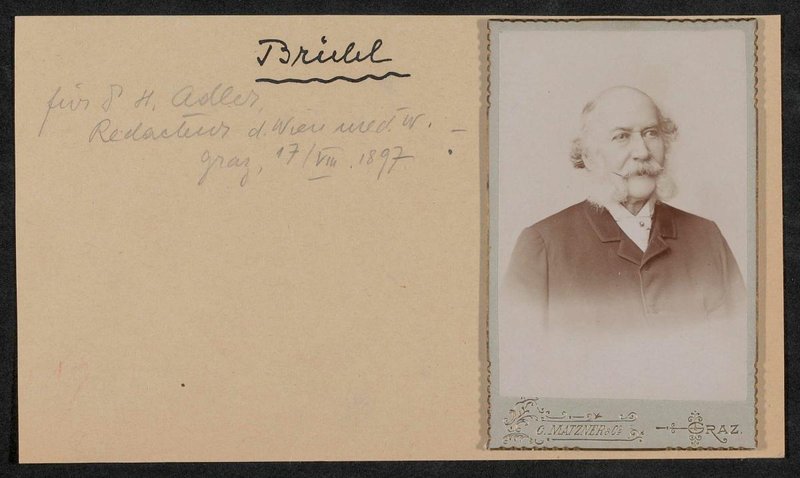 Brühl
für Dr H. Adler,
Redacteur d. Wien. med. W. –
Graz, 17/VIII. 1897.
G. MATZNER & Co GRAZ.